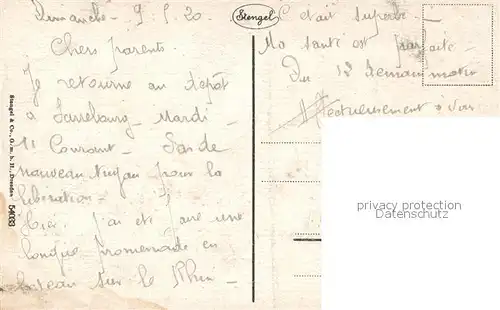 Dimanche - 9.5.20
Chers parents.
Je retourne au dépôt
à Sarrebourg - Mardi -
11 Courant - Pas de
nouveau tuyau pour la
libération -
Hier. j'ai été faire une
longue promenade en
bateau sur le Rhin -
C'était superbe. -
Ma santé est parfaite -
Du 12 demain matin
Affectueusement à vous
Stengel
Stengel & Co., G. m. b. H., Dresden 54033
privacy protection
Datenschutz